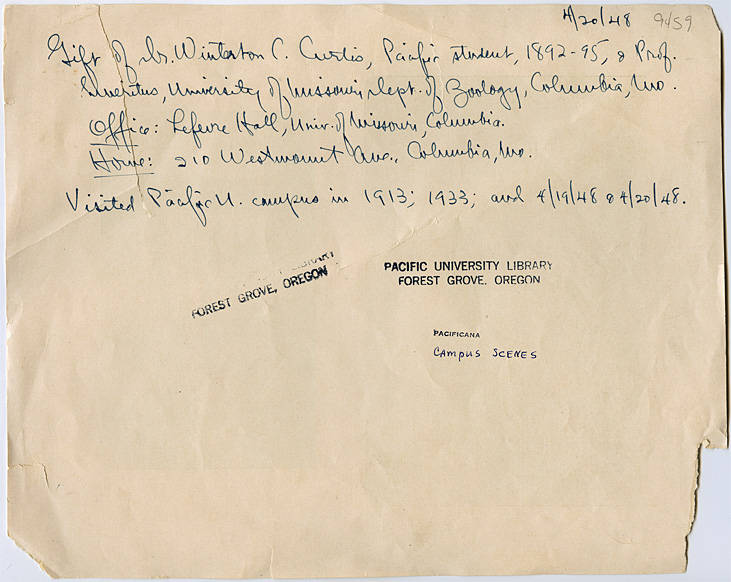 4/20/48 9459
Gift of Dr. Winterton C. Curtis, Pacific student, 1892-95, & Prof.
Emeritus, University of Missouri, Dept. of Zoology, Columbia, Mo.
Office: Lefevre Hall, Univ. of Missouri, Columbia.
Home: 210 Westmount Ave., Columbia, Mo.
Visited Pacific U. campus in 1913; 1933; and 4/19/48 & 4/20/48.
LIBRARY
FOREST GROVE, OREGON
PACIFIC UNIVERSITY LIBRARY
FOREST GROVE, OREGON
PACIFICANA
CAMPUS SCENES